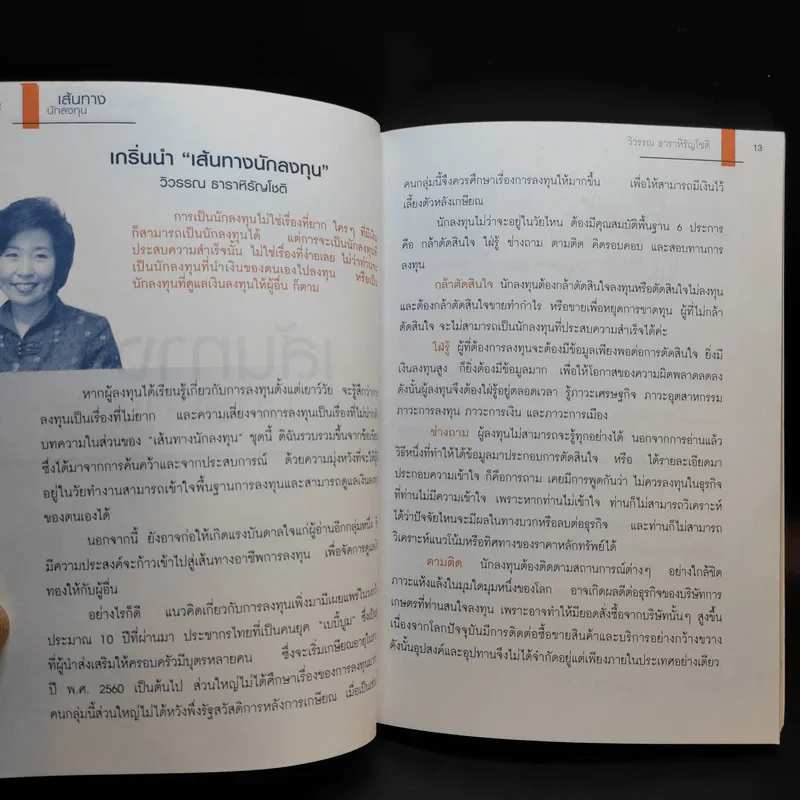 เส้นทาง
นักลงทุน
เกริ่นนำ “เส้นทางนักลงทุน”
วิวรรณ ธาราหิรัญโชติ
การเป็นนักลงทุนไม่ใช่เรื่องที่ยาก ใครๆ ที่มีเงิน
ก็สามารถเป็นนักลงทุนได้ แต่การจะเป็นนักลงทุนที่
ประสบความสำเร็จนั้น ไม่ใช่เรื่องที่ง่ายเลย ไม่ว่าท่านจะ
เป็นนักลงทุนที่นำเงินของตนเองไปลงทุน หรือเป็น
นักลงทุนที่ดูแลเงินลงทุนให้ผู้อื่น ก็ตาม
หากผู้ลงทุนได้เรียนรู้เกี่ยวกับการลงทุนตั้งแต่เยาว์วัย จะรู้สึกว่าการ
ลงทุนเป็นเรื่องที่ไม่ยาก และความเสี่ยงจากการลงทุนเป็นเรื่องที่ไม่น่ากลัว
บทความในส่วนของ “เส้นทางนักลงทุน” ชุดนี้ ดิฉันรวบรวมขึ้นจากข้อเขียน
ซึ่งได้มาจากการค้นคว้าและจากประสบการณ์ ด้วยความมุ่งหวังที่จะให้ผู้
อยู่ในวัยทำงานสามารถเข้าใจพื้นฐานการลงทุนและสามารถดูแลเงินลงทุน
ของตนเองได้
นอกจากนี้ ยังอาจก่อให้เกิดแรงบันดาลใจแก่ผู้อ่านอีกกลุ่มหนึ่ง
มีความประสงค์จะก้าวเข้าไปสู่เส้นทางอาชีพการลงทุน เพื่อจัดการดูแลเงิน
ทองให้กับผู้อื่น
อย่างไรก็ดี แนวคิดเกี่ยวกับการลงทุนเพิ่งมามีเผยแพร่ในวงกว้าง
ประมาณ 10 ปีที่ผ่านมา ประชากรไทยที่เป็นคนยุค “เบบี้บูม” ซึ่งเป็น
ที่ผู้นำส่งเสริมให้ครอบครัวมีบุตรหลายคน ซึ่งจะเริ่มเกษียณอายุใน
ปี พ.ศ. 2560 เป็นต้นไป ส่วนใหญ่ไม่ได้ศึกษาเรื่องของการลงทุนมา
คนกลุ่มนี้ส่วนใหญ่ไม่ได้หวังพึ่งรัฐสวัสดิการหลังการเกษียณ เมื่อเป็นเช่น
วิวรรณ ธาราหิรัญโชติ 13
คนกลุ่มนี้จึงควรศึกษาเรื่องการลงทุนให้มากขึ้น เพื่อให้สามารถมีเงินไว้
เลี้ยงตัวหลังเกษียณ
นักลงทุนไม่ว่าจะอยู่ในวัยไหน ต้องมีคุณสมบัติพื้นฐาน 6 ประการ
คือ กล้าตัดสินใจ ใฝ่รู้ ช่างถาม ตามติด คิดรอบคอบ และสอบทานการ
ลงทุน
กล้าตัดสินใจ นักลงทุนต้องกล้าตัดสินใจลงทุนหรือตัดสินใจไม่ลงทุน
และต้องกล้าตัดสินใจขายทำกำไร หรือขายเพื่อหยุดการขาดทุน ผู้ที่ไม่กล้า
ตัดสินใจ จะไม่สามารถเป็นนักลงทุนที่ประสบความสำเร็จได้ค่ะ
ใฝ่รู้ ผู้ที่ต้องการลงทุนจะต้องมีข้อมูลเพียงพอต่อการตัดสินใจ ยิ่งมี
เงินลงทุนสูง ก็ยิ่งต้องมีข้อมูลมาก เพื่อให้โอกาสของความผิดพลาดลดลง
ดังนั้นผู้ลงทุนจึงต้องใฝ่รู้อยู่ตลอดเวลา รู้ภาวะเศรษฐกิจ ภาวะอุตสาหกรรม
ภาวะการลงทุน ภาวะการเงิน และภาวะการเมือง
ช่างถาม ผู้ลงทุนไม่สามารถจะรู้ทุกอย่างได้ นอกจากการอ่านแล้ว
วิธีหนึ่งที่ทำให้ได้ข้อมูลมาประกอบการตัดสินใจ หรือ ได้รายละเอียดมา
ประกอบความเข้าใจ ก็คือการถาม เคยมีการพูดกันว่า ไม่ควรลงทุนในธุรกิจ
ที่ท่านไม่มีความเข้าใจ เพราะหากท่านไม่เข้าใจ ท่านก็ไม่สามารถวิเคราะห์
ได้ว่าปัจจัยไหนจะมีผลในทางบวกหรือลบต่อธุรกิจ และท่านก็ไม่สามารถ
วิเคราะห์แนวโน้มหรือทิศทางของราคาหลักทรัพย์ได้
ตามติด นักลงทุนต้องติดตามสถานการณ์ต่างๆ อย่างใกล้ชิด
ภาวะแห้งแล้งในมุมใดมุมหนึ่งของโลก อาจเกิดผลดีต่อธุรกิจของบริษัทการ
เกษตรที่ท่านสนใจลงทุน เพราะอาจทำให้มียอดสั่งซื้อจากบริษัทนั้นๆ สูงขึ้น
เนื่องจากโลกปัจจุบันมีการติดต่อซื้อขายสินค้าและบริการอย่างกว้างขวาง
ดังนั้นอุปสงค์และอุปทานจึงไม่ได้จำกัดอยู่แต่เพียงภายในประเทศอย่างเดียว